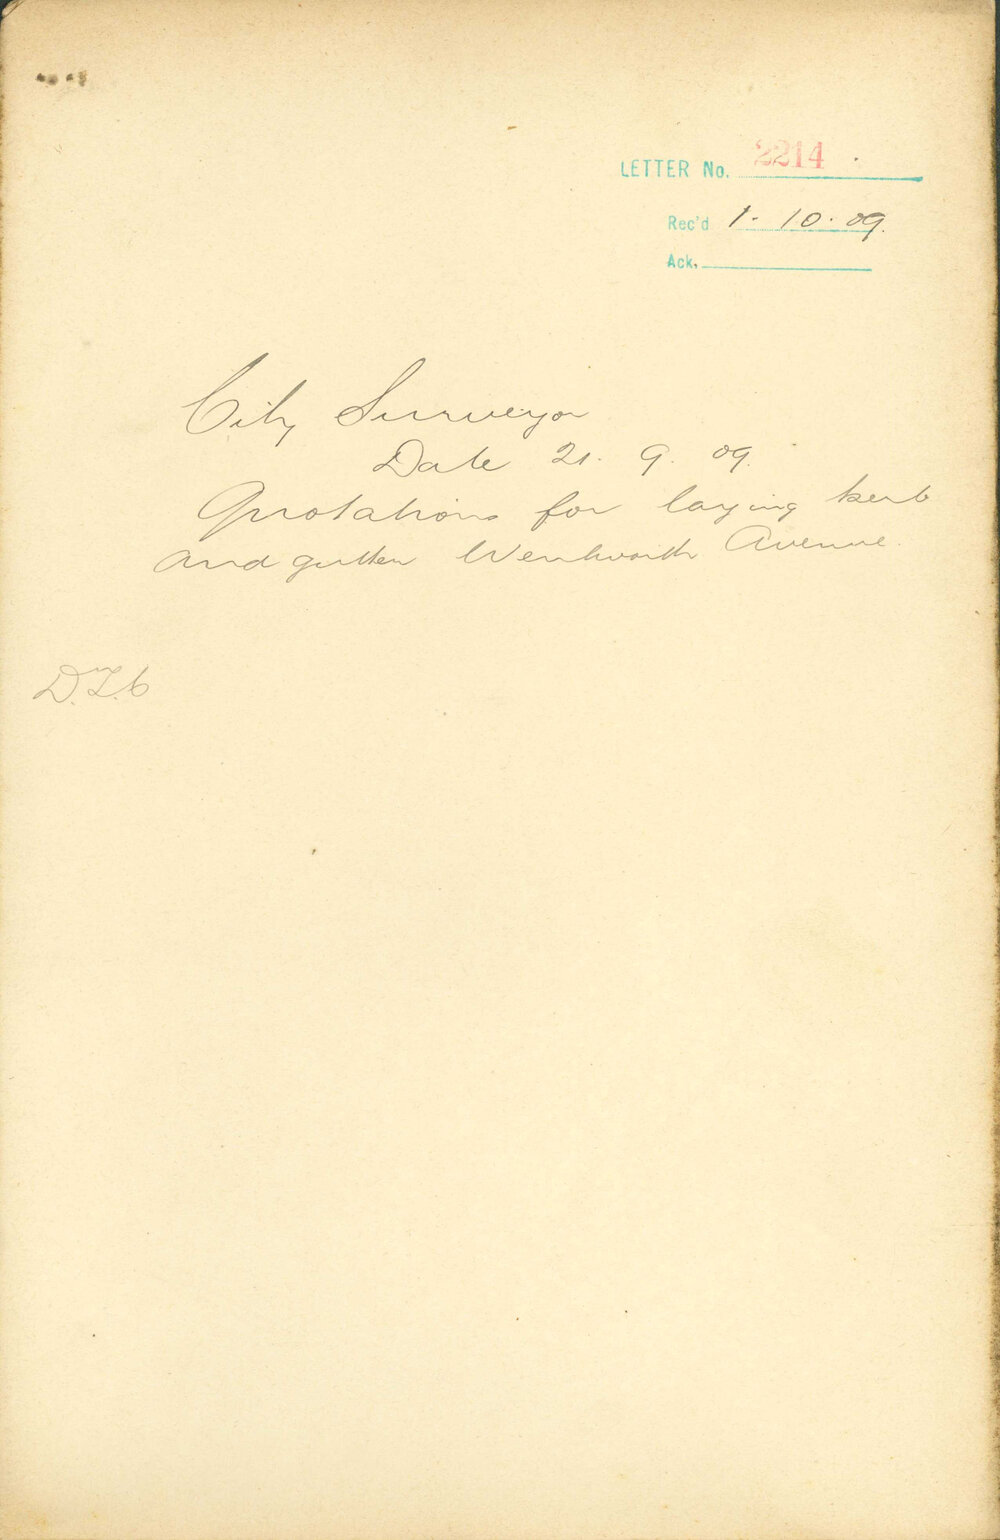 LETTER No. 2214
Rec'd 1. 10. 09.
Ack.
City Surveyor
Date 21. 9. 09.
Quotations for laying kerb
and gutter Wentworth Avenue.